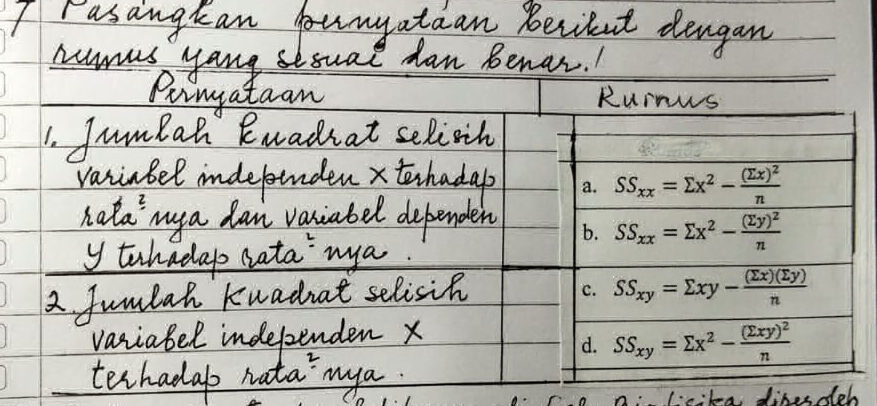 7 Pasangkan pernyataan berikut dengan
rumus yang sesuai dan benar.!
Pernyataan
Rumus
1. Jumlah kuadrat selisih
variabel independen x terhadap
rata²nya dan variabel dependen
y terhadap rata²nya.
2. Jumlah kuadrat selisih
variabel independen x
terhadap rata²nya.
a. SSxx = Σx² − (Σx)²/n
b. SSxx = Σx² − (Σy)²/n
c. SSxy = Σxy − (Σx)(Σy)/n
d. SSxy = Σx² − (Σxy)²/n
diperoleh